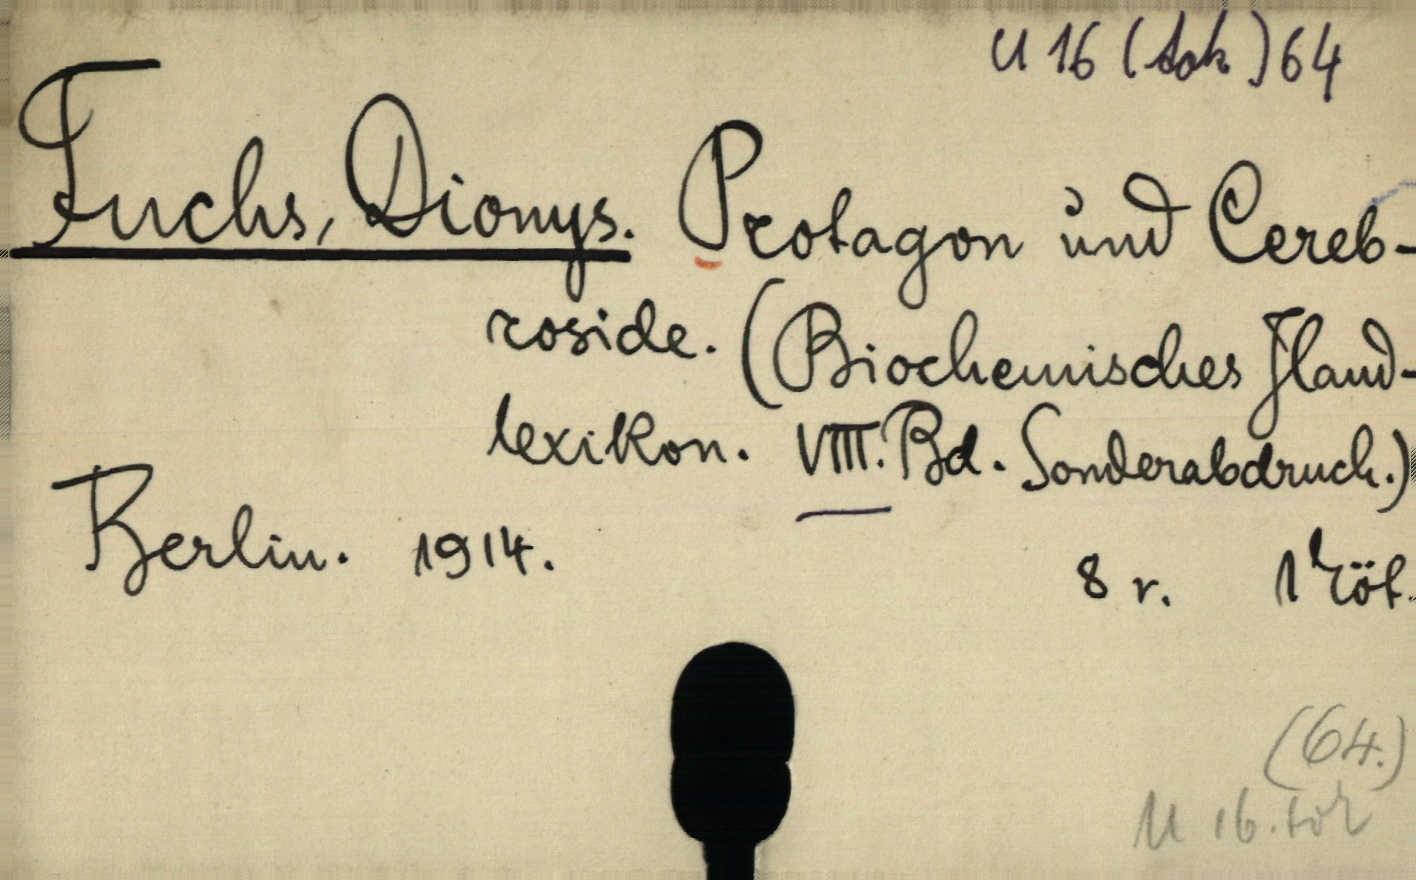 U 16 (tok) 64
Fuchs, Dionys. Protagon und Cereb-
roside. (Biochemisches Hand-
lexikon. VIII. Bd. Sonderabdruck.)
Berlin. 1914.
8 r. 1 köt.
(64.)
U 16.